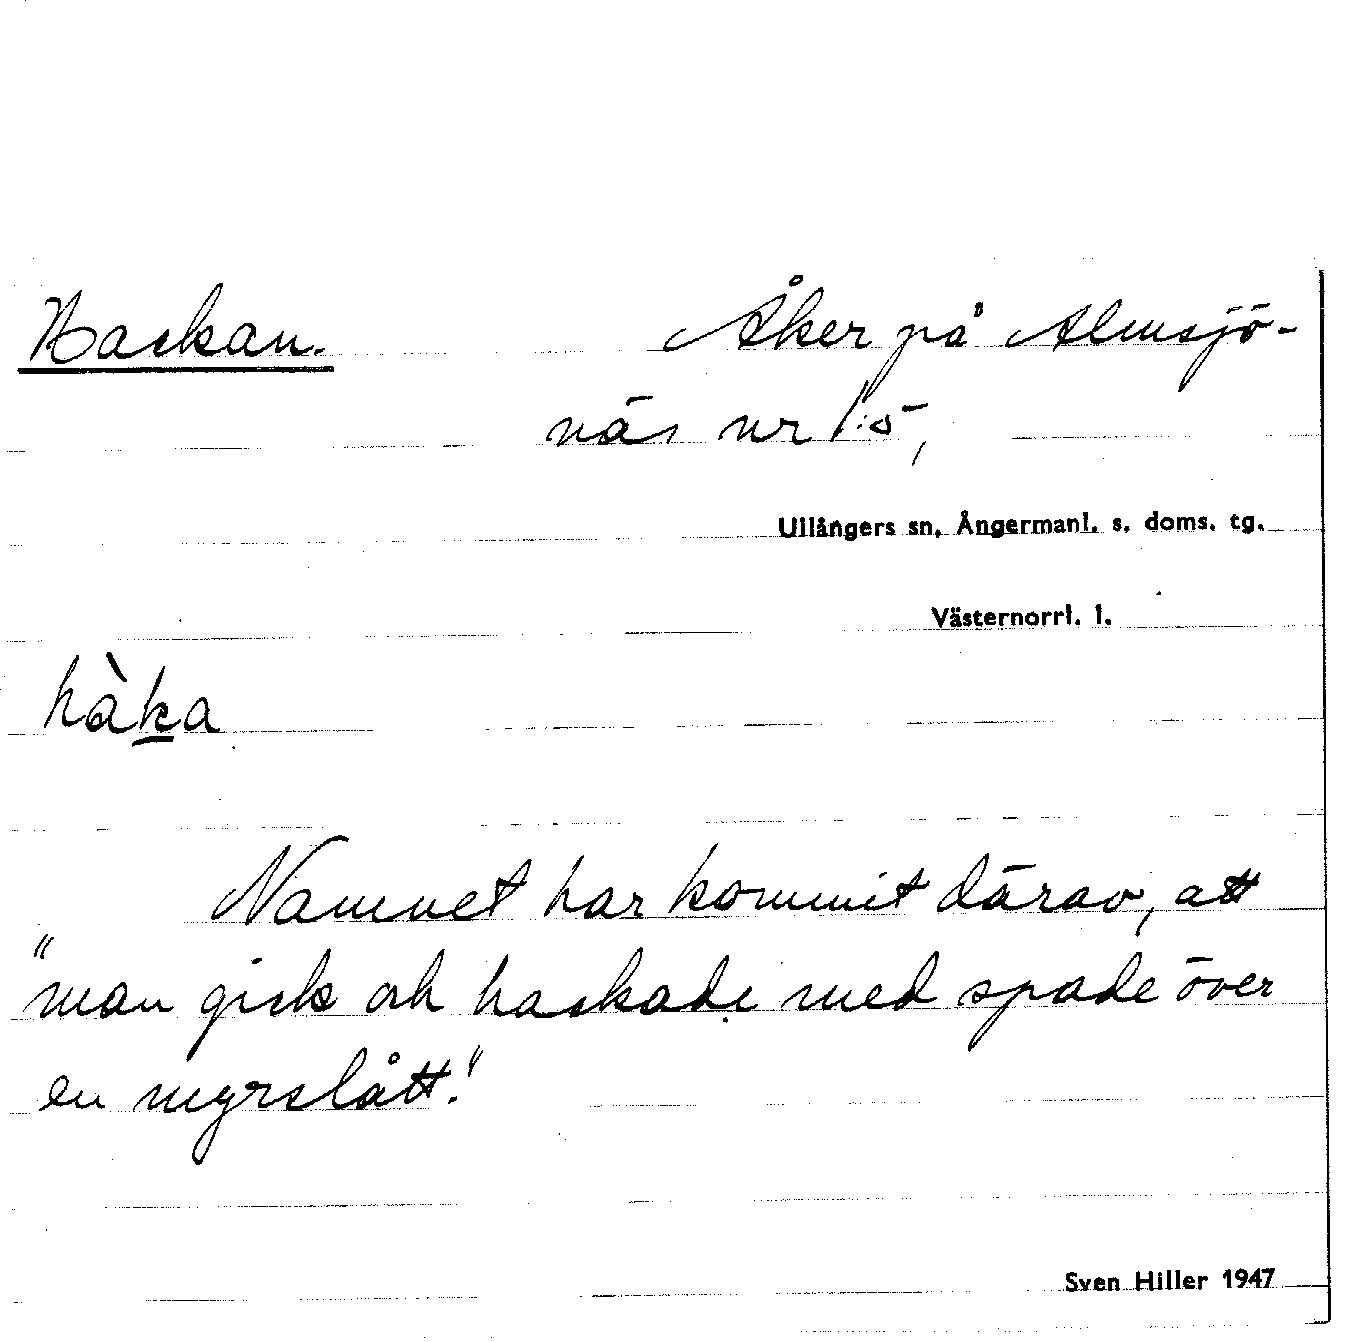 Hackan. Åker på Almsjö-
näs nr 1:5,
Ullångers sn, Ångermanl. s. doms. tg.
Västernorrl. l.
hàka
Namnet har kommit därav, att
"man gick och hackade med spade över
en myrslått."
Sven Hiller 1947